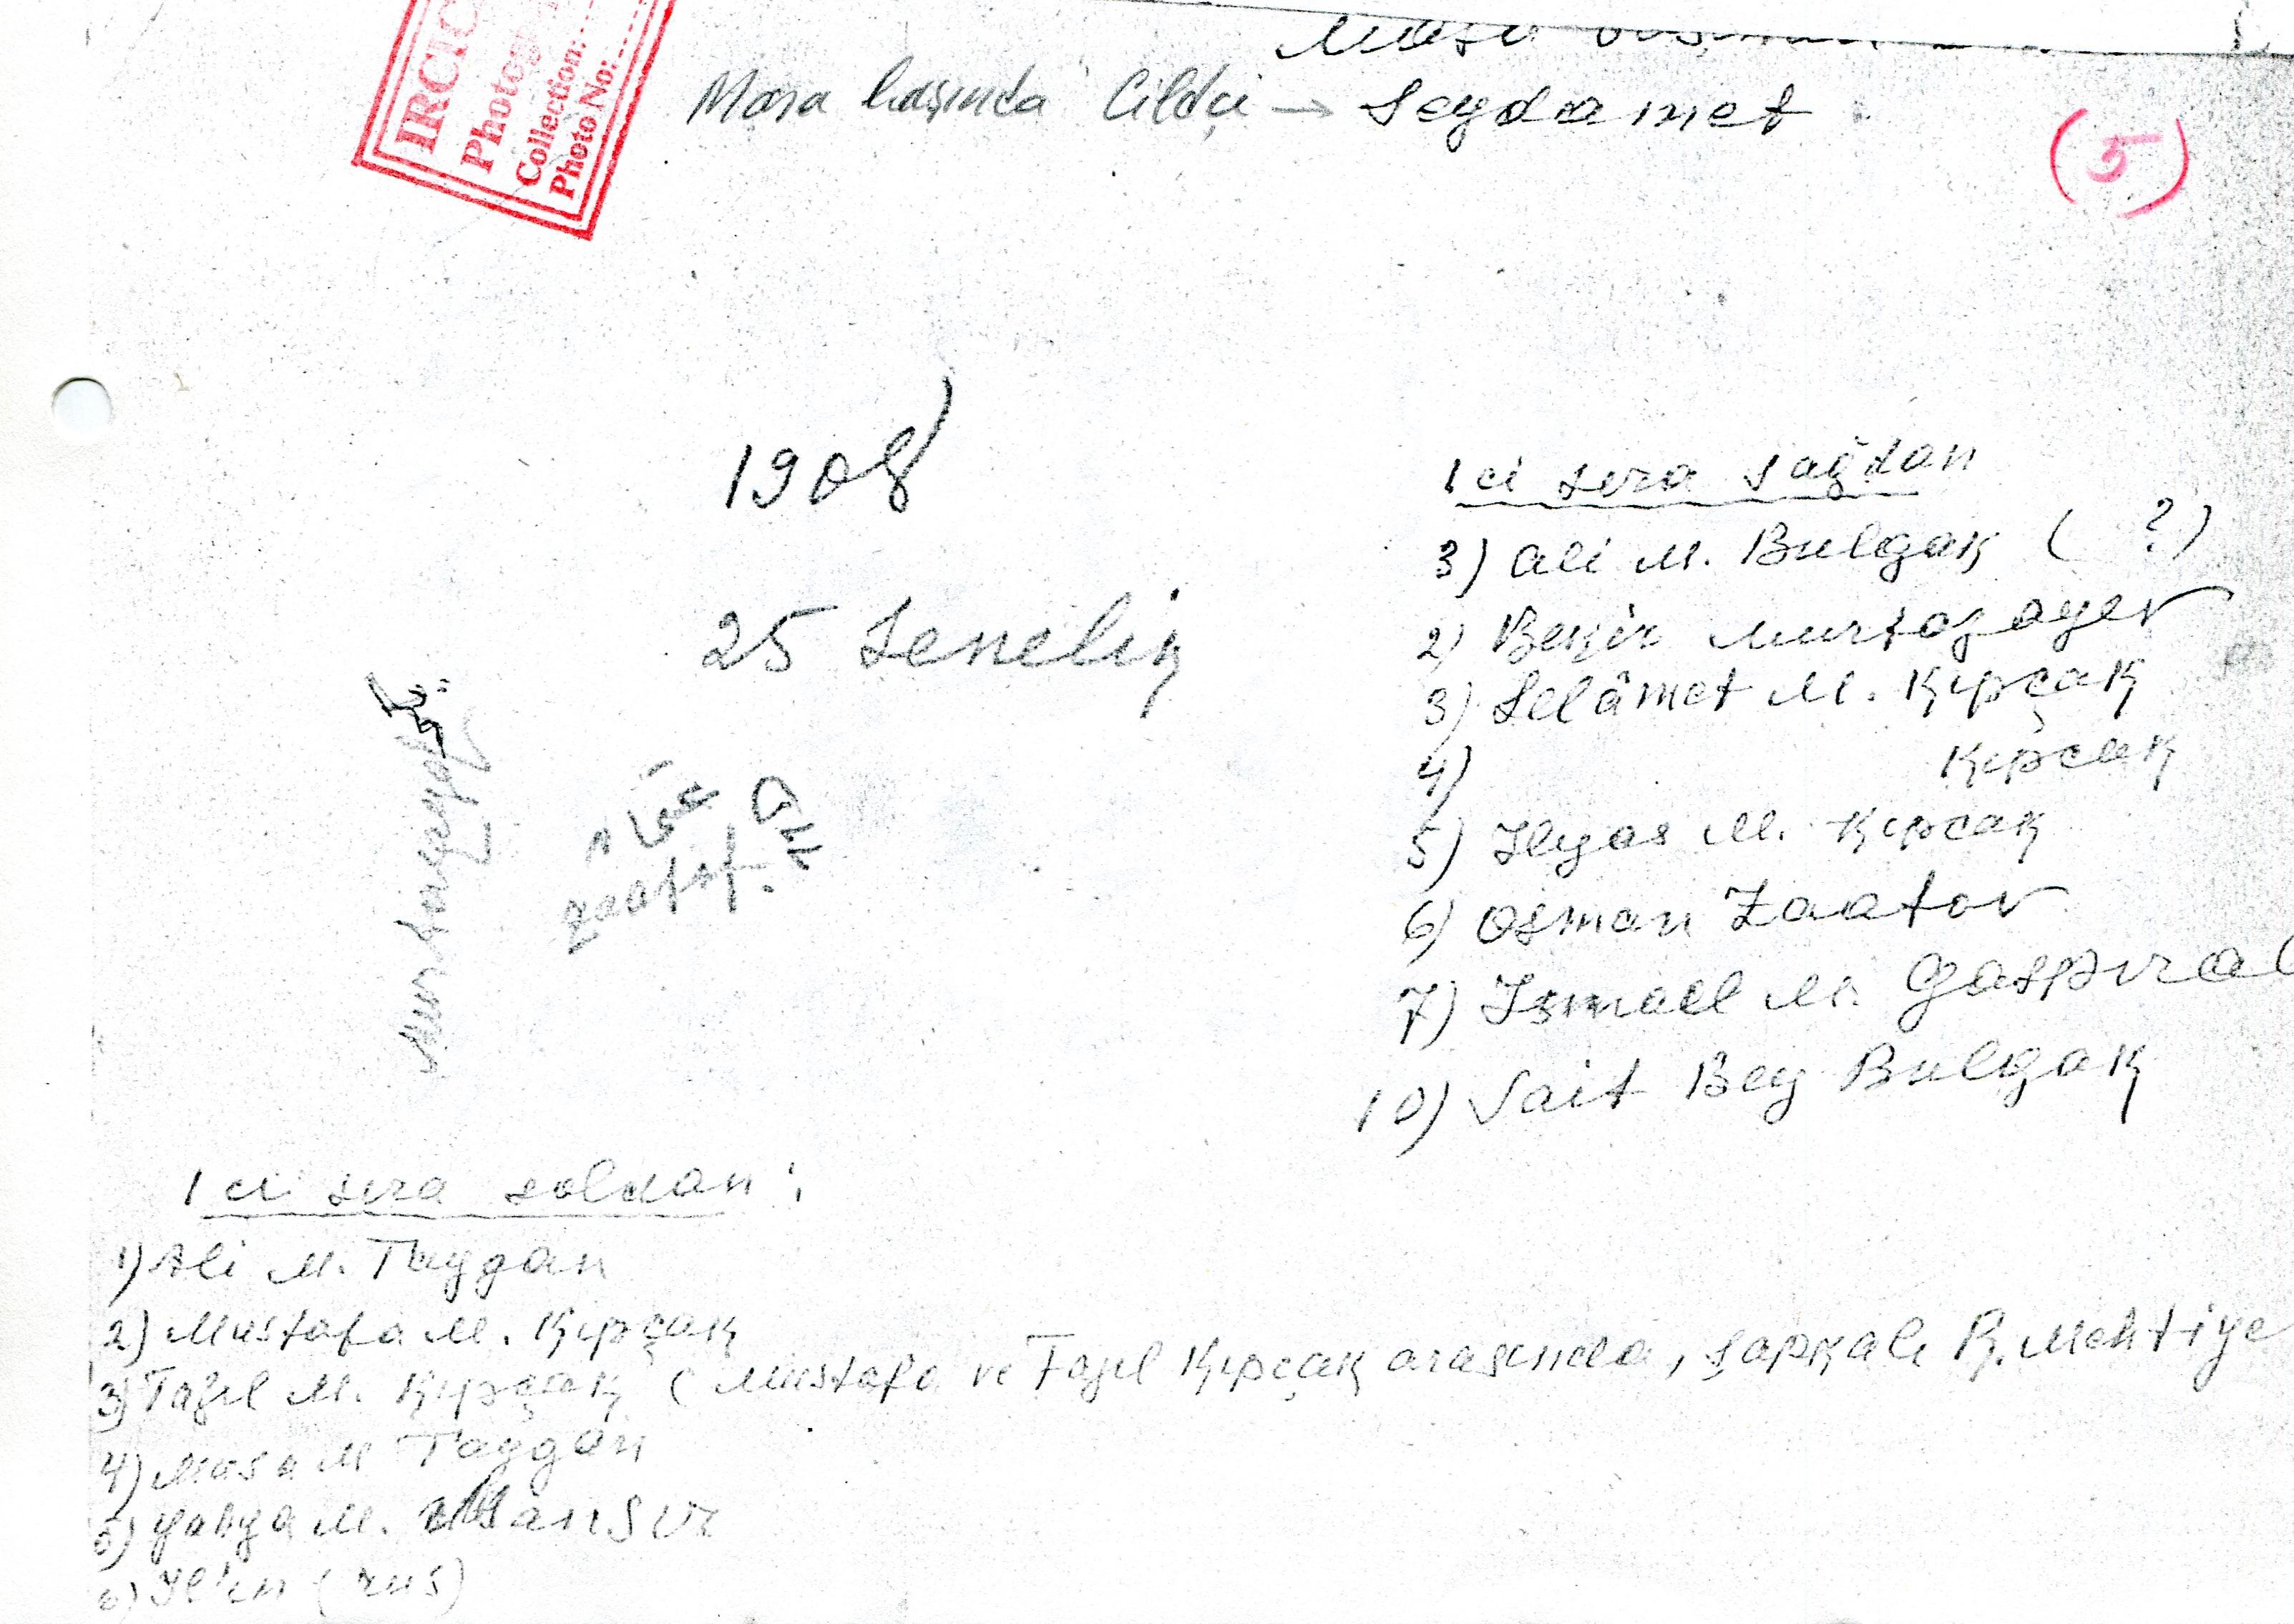 IRCIC
Photog
Collection:
Photo No:
Masa başında Cildci → Seydamet
(5)
1908
25 Senelik
1 ci sıra sağdan
3) Ali M. Bulgak ( ?)
2) Bekir Murtazayev
3) Selâmet M. Kıpçak
4) Kıpçak
5) Ilyas M. Kıpcak
6) Osman Zaatov
7) Ismail M. Gaspıral
10) Sait Bey Bulgak
Murtazayef
عثمان
zaatof.
1 ci sıra soldan:
1) Ali M. Taygan
2) Mustafa M. Kıpçak
3) Fazıl M. Kıpçak ( Mustafa ve Fazıl Kıpçak arasında, şapkalı R. Mehtiye
4) Musa M Taygan
5) Yahya M. Mansur
6) Il'in (rus)